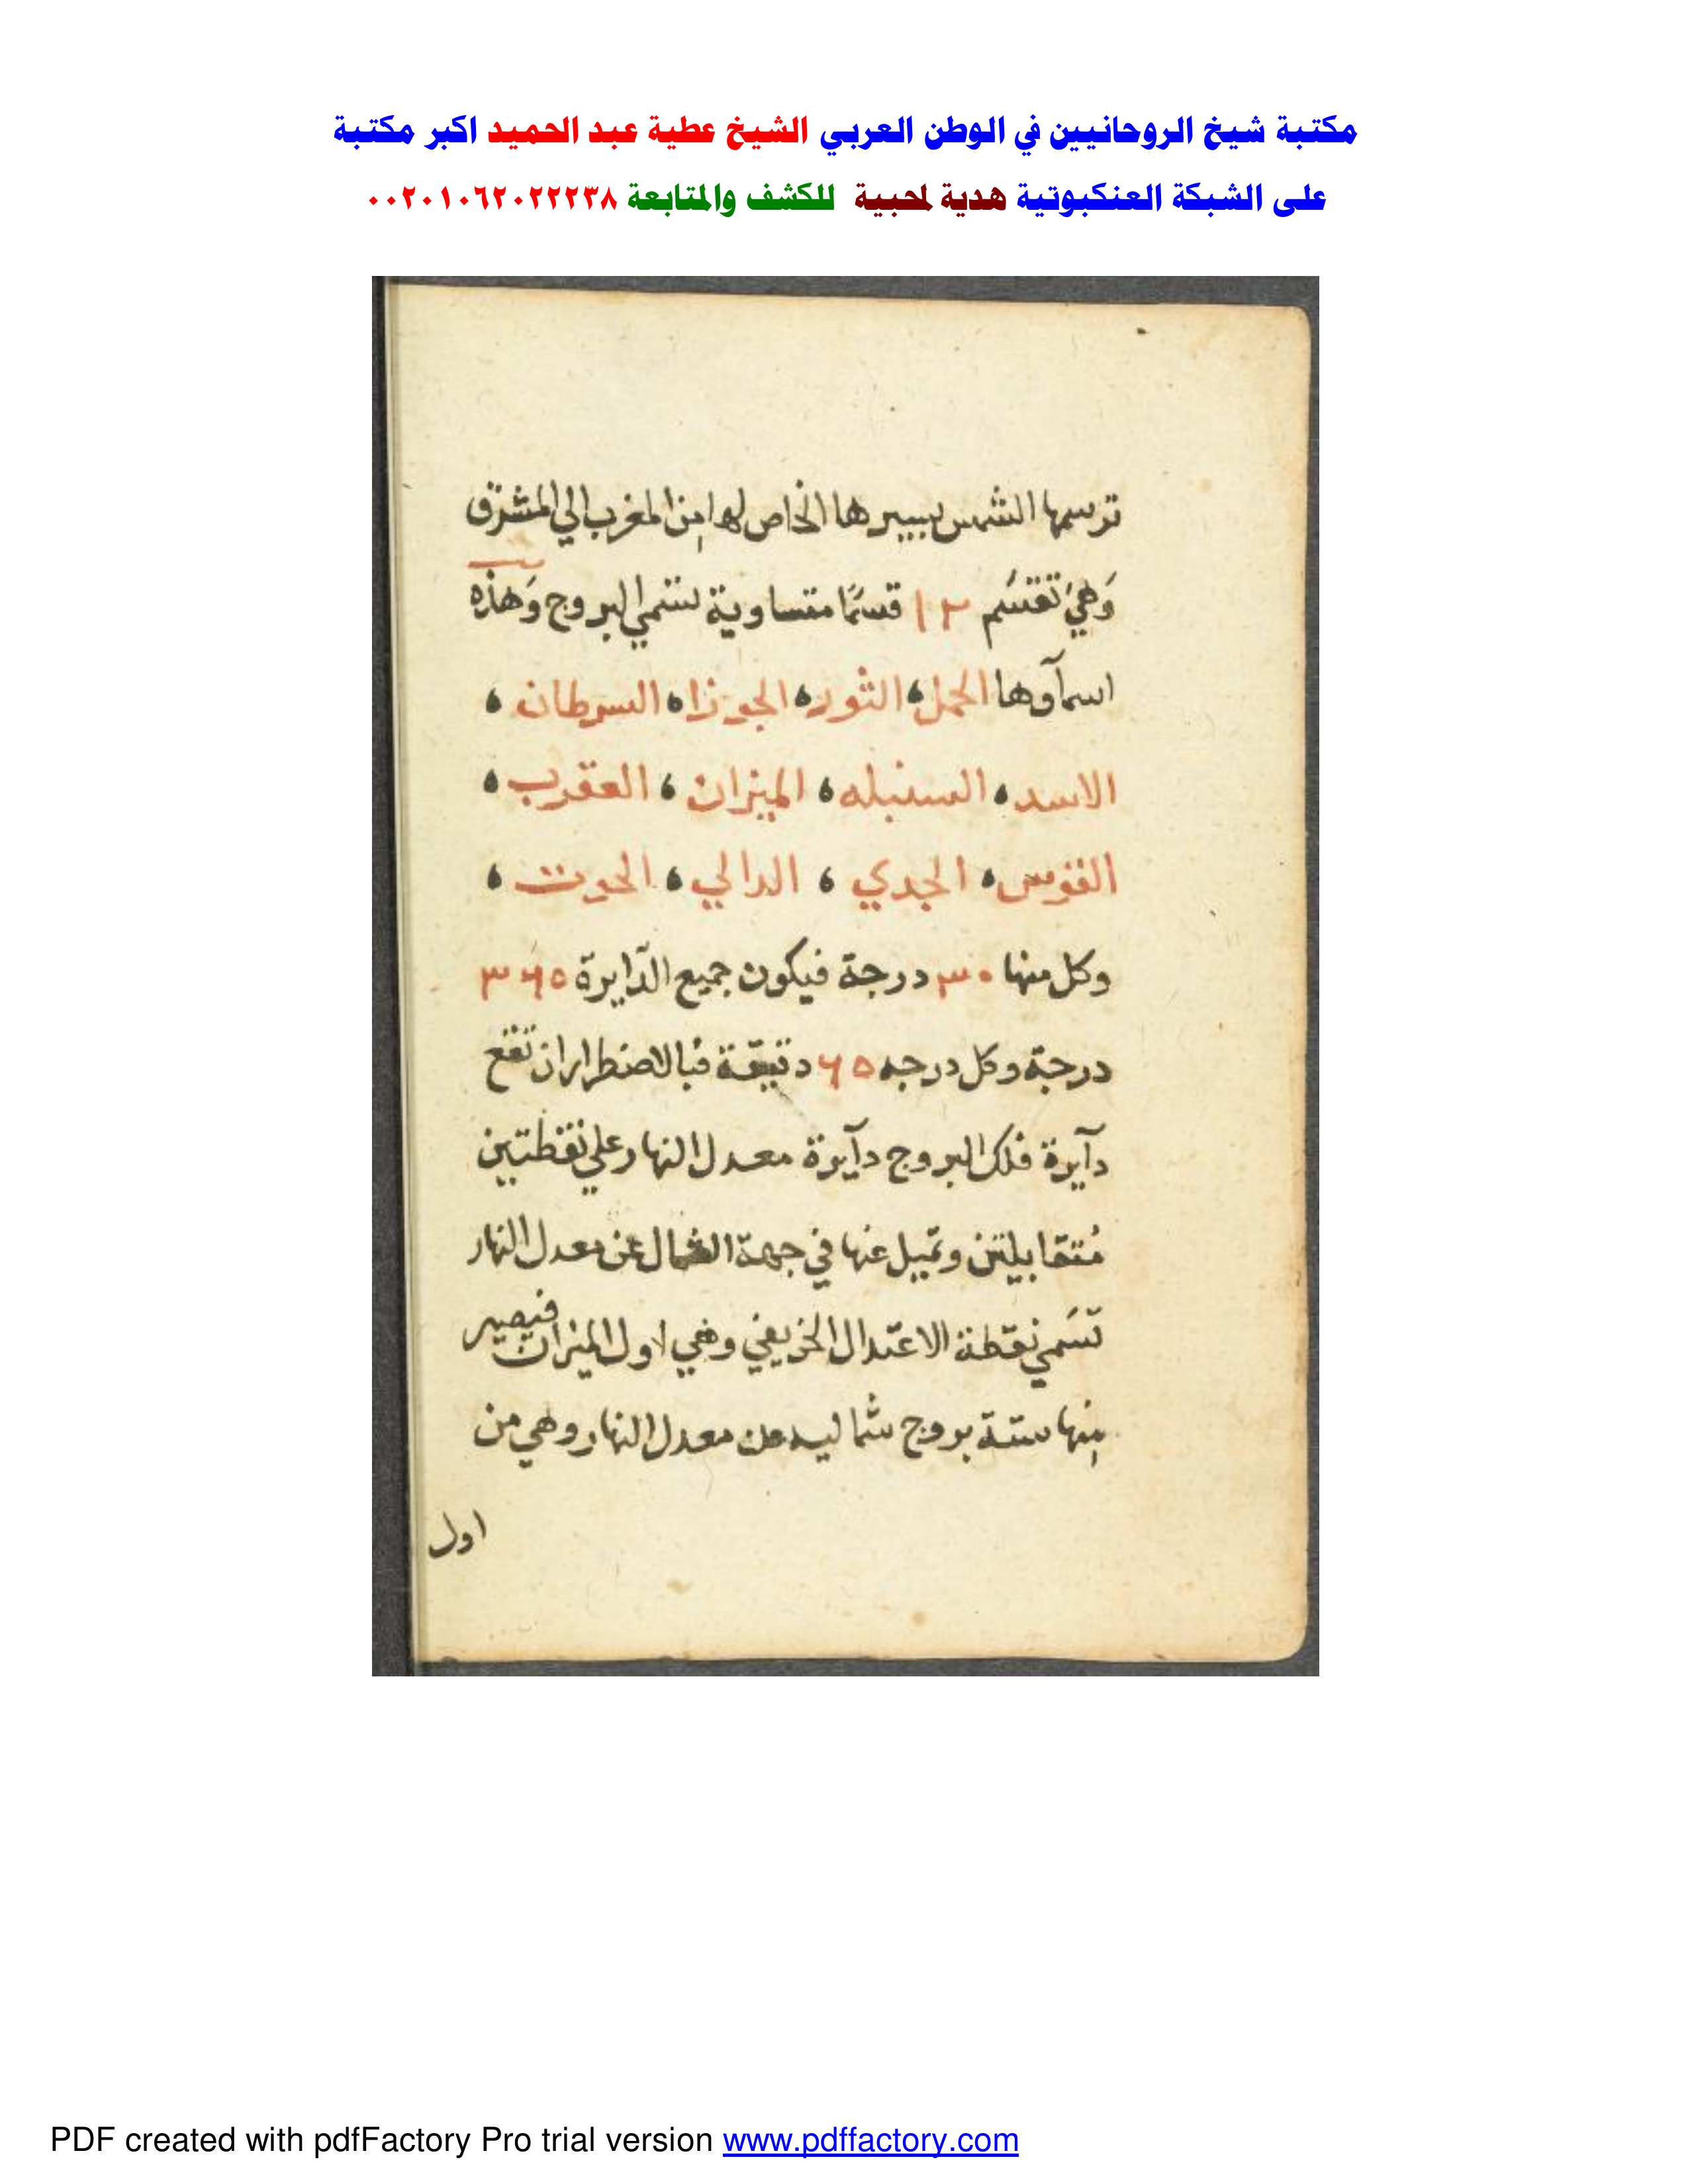 مكتبة شيخ الروحانيين في الوطن العربي الشيخ عطية عبد الحميد اكبر مكتبة
على الشبكة العنكبوتية هدية لمحبية للكشف والمتابعة ٠٠٢٠١٠٦٢٠٢٢٢٣٨
ترسمها الشمس بسيرها الخاص لها من المغرب الي المشرق
وَهيَ تقسَم ١٢ قسمًا متساوية تسمي البروج وَهذه
اسمآوها الحمل، الثور، الجوزا، السرطان،
الاسد، السنبله، الميزان، العقرب،
القوس، الجدي، الدالي، الحوت،
وكل منها ٣٠ درجة فيكون جميع الدايرة ٣٦٥
درجة وكل درجه ٦٥ دقيقة فبالاضطرار ان تقع
دآيرة فلك البروج دآيرة معدل النهار علي نقطتين
مُتقابيلتين وتميل عنها في جهة الشمال عن معدل النهار
تسَمي نقطة الاعتدال الخريفي وهي اول الميزان فيصير
منها ستة بروج شماليه عن معدل النهار وهي من
اول
PDF created with pdfFactory Pro trial version www.pdffactory.com